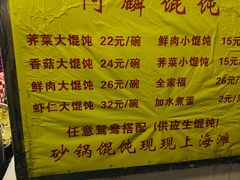 阿麟馄饨
荠菜大馄饨 22元/碗 鲜肉小馄饨 15元
香菇大馄饨 24元/碗 荠菜小馄饨 15
鲜肉大馄饨 26元/碗 全家福 26
虾仁大馄饨 32元/碗 加水煮蛋 2元
任意鸳鸯搭配 (供应生馄饨)
砂锅馄饨现现上海滩